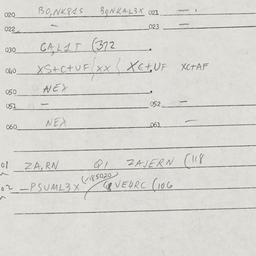 020 BO,NKR1S BQNKAL3X 021 — .
022 — 023 —
030 GA,L1T (372
040 XS+C+UF/XX/ XC+UF XC+AF
050 NEX
051 — 052 —
060 NEX 061 —
01 ZA,RN Q1 ZAJERN (118
02 —PSUML3X (185020 QVE4RC (106